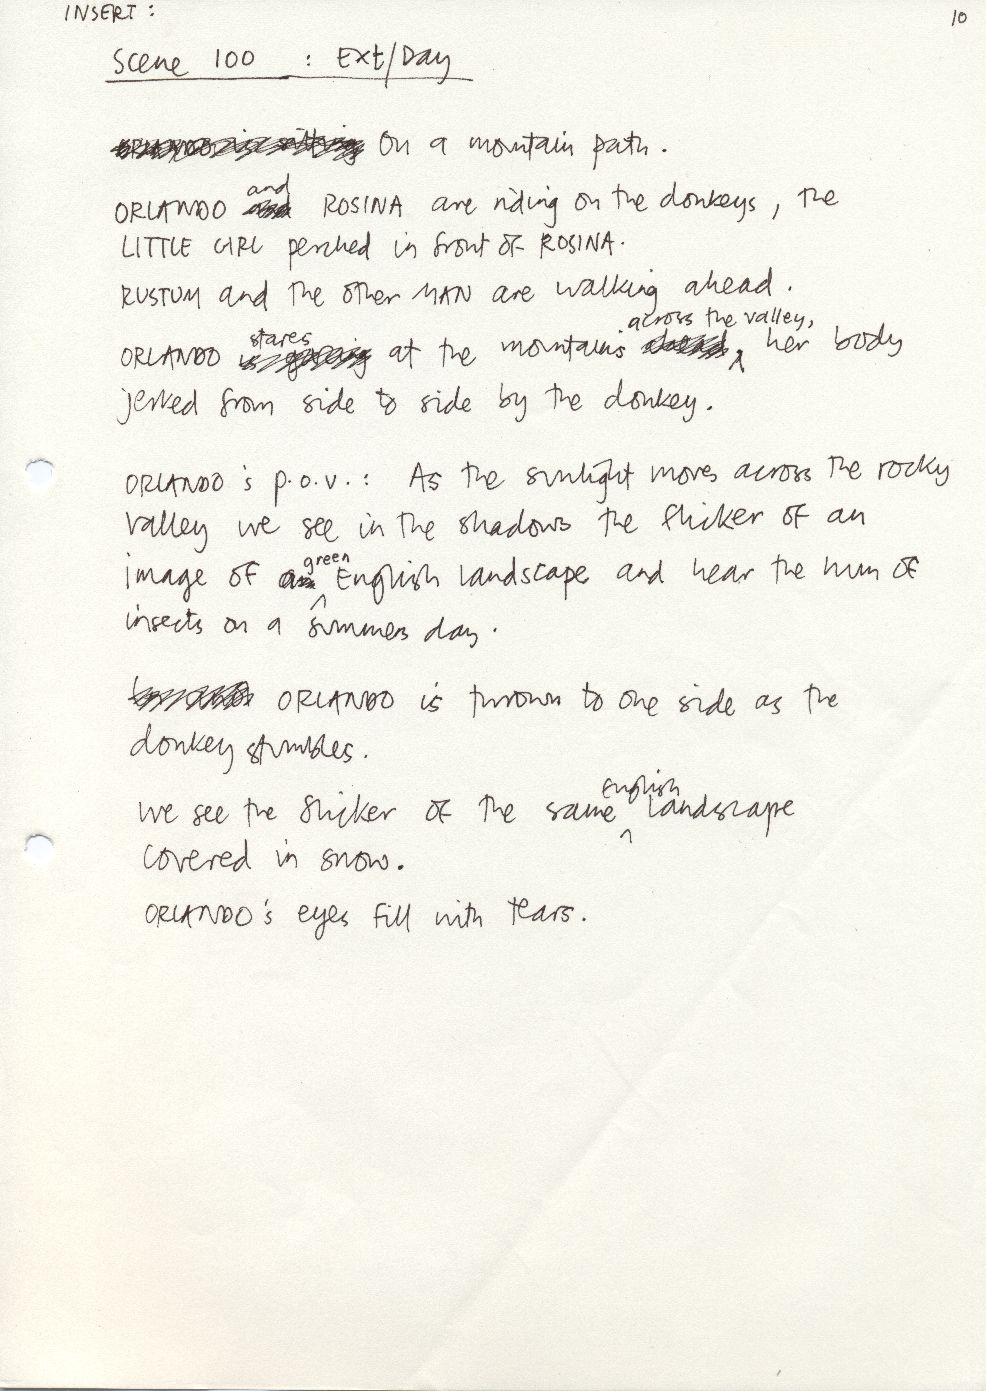 INSERT :
10
Scene 100 : Ext/Day
On a mountain path.
and
ORLANDO ROSINA are riding on the donkeys, the
LITTLE GIRL perched in front of ROSINA.
RUSTUM and the other MAN are walking ahead.
across the valley,
stares
ORLANDO at the mountains her body
jerked from side to side by the donkey.
ORLANDO's p.o.v.: As the sunlight moves across the rocky
valley we see in the shadows the flicker of an
green
image of English landscape and hear the hum of
insects on a summers day.
ORLANDO is thrown to one side as the
donkey stumbles.
English
We see the flicker of the same landscape
covered in snow.
ORLANDO's eyes fill with tears.